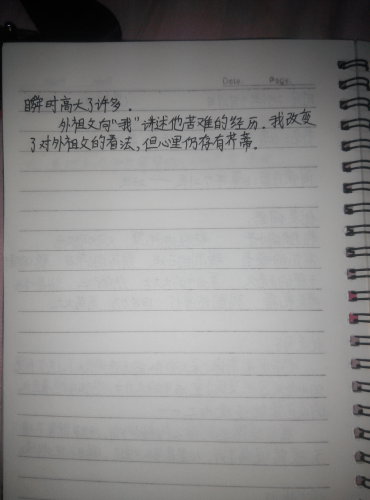 Date. Page.
瞬时高大了许多.
外祖父向“我”讲述他苦难的经历.我改变
了对外祖父的看法,但心里仍存有芥蒂。